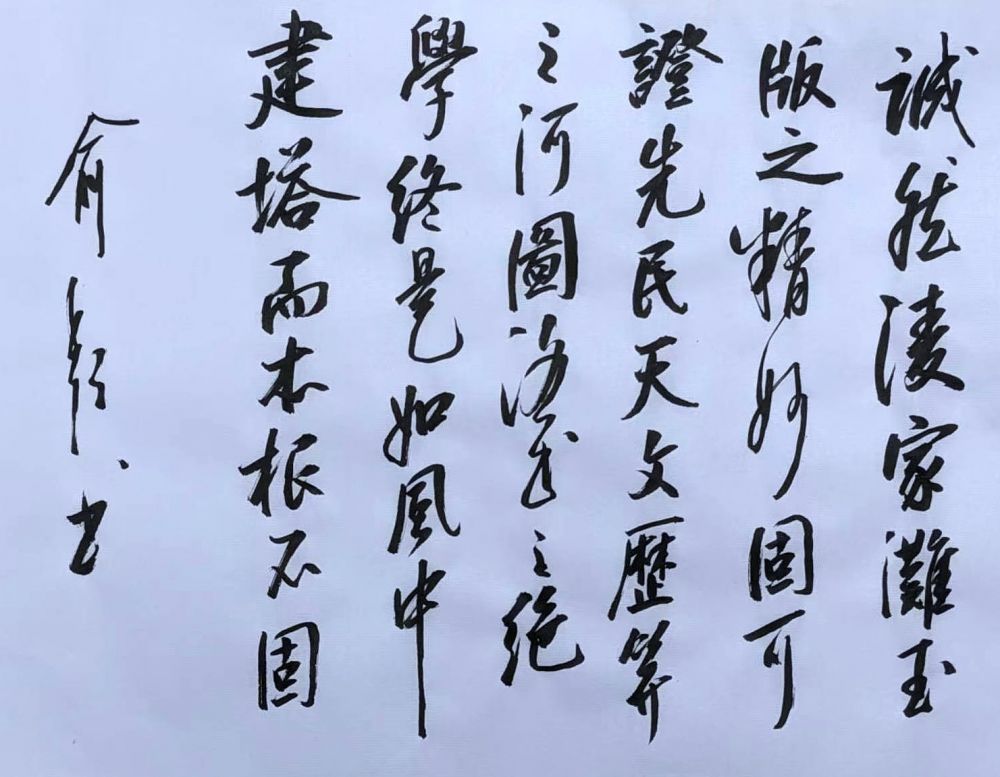 誠然淩家灘玉
版之精妙固可
證先民天文歷算
之河圖洛書之絕
學終是如風中
建塔而本根不固
俞書